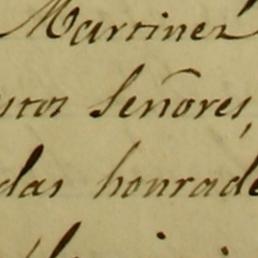 Martinez
stos Señores,
das honrade